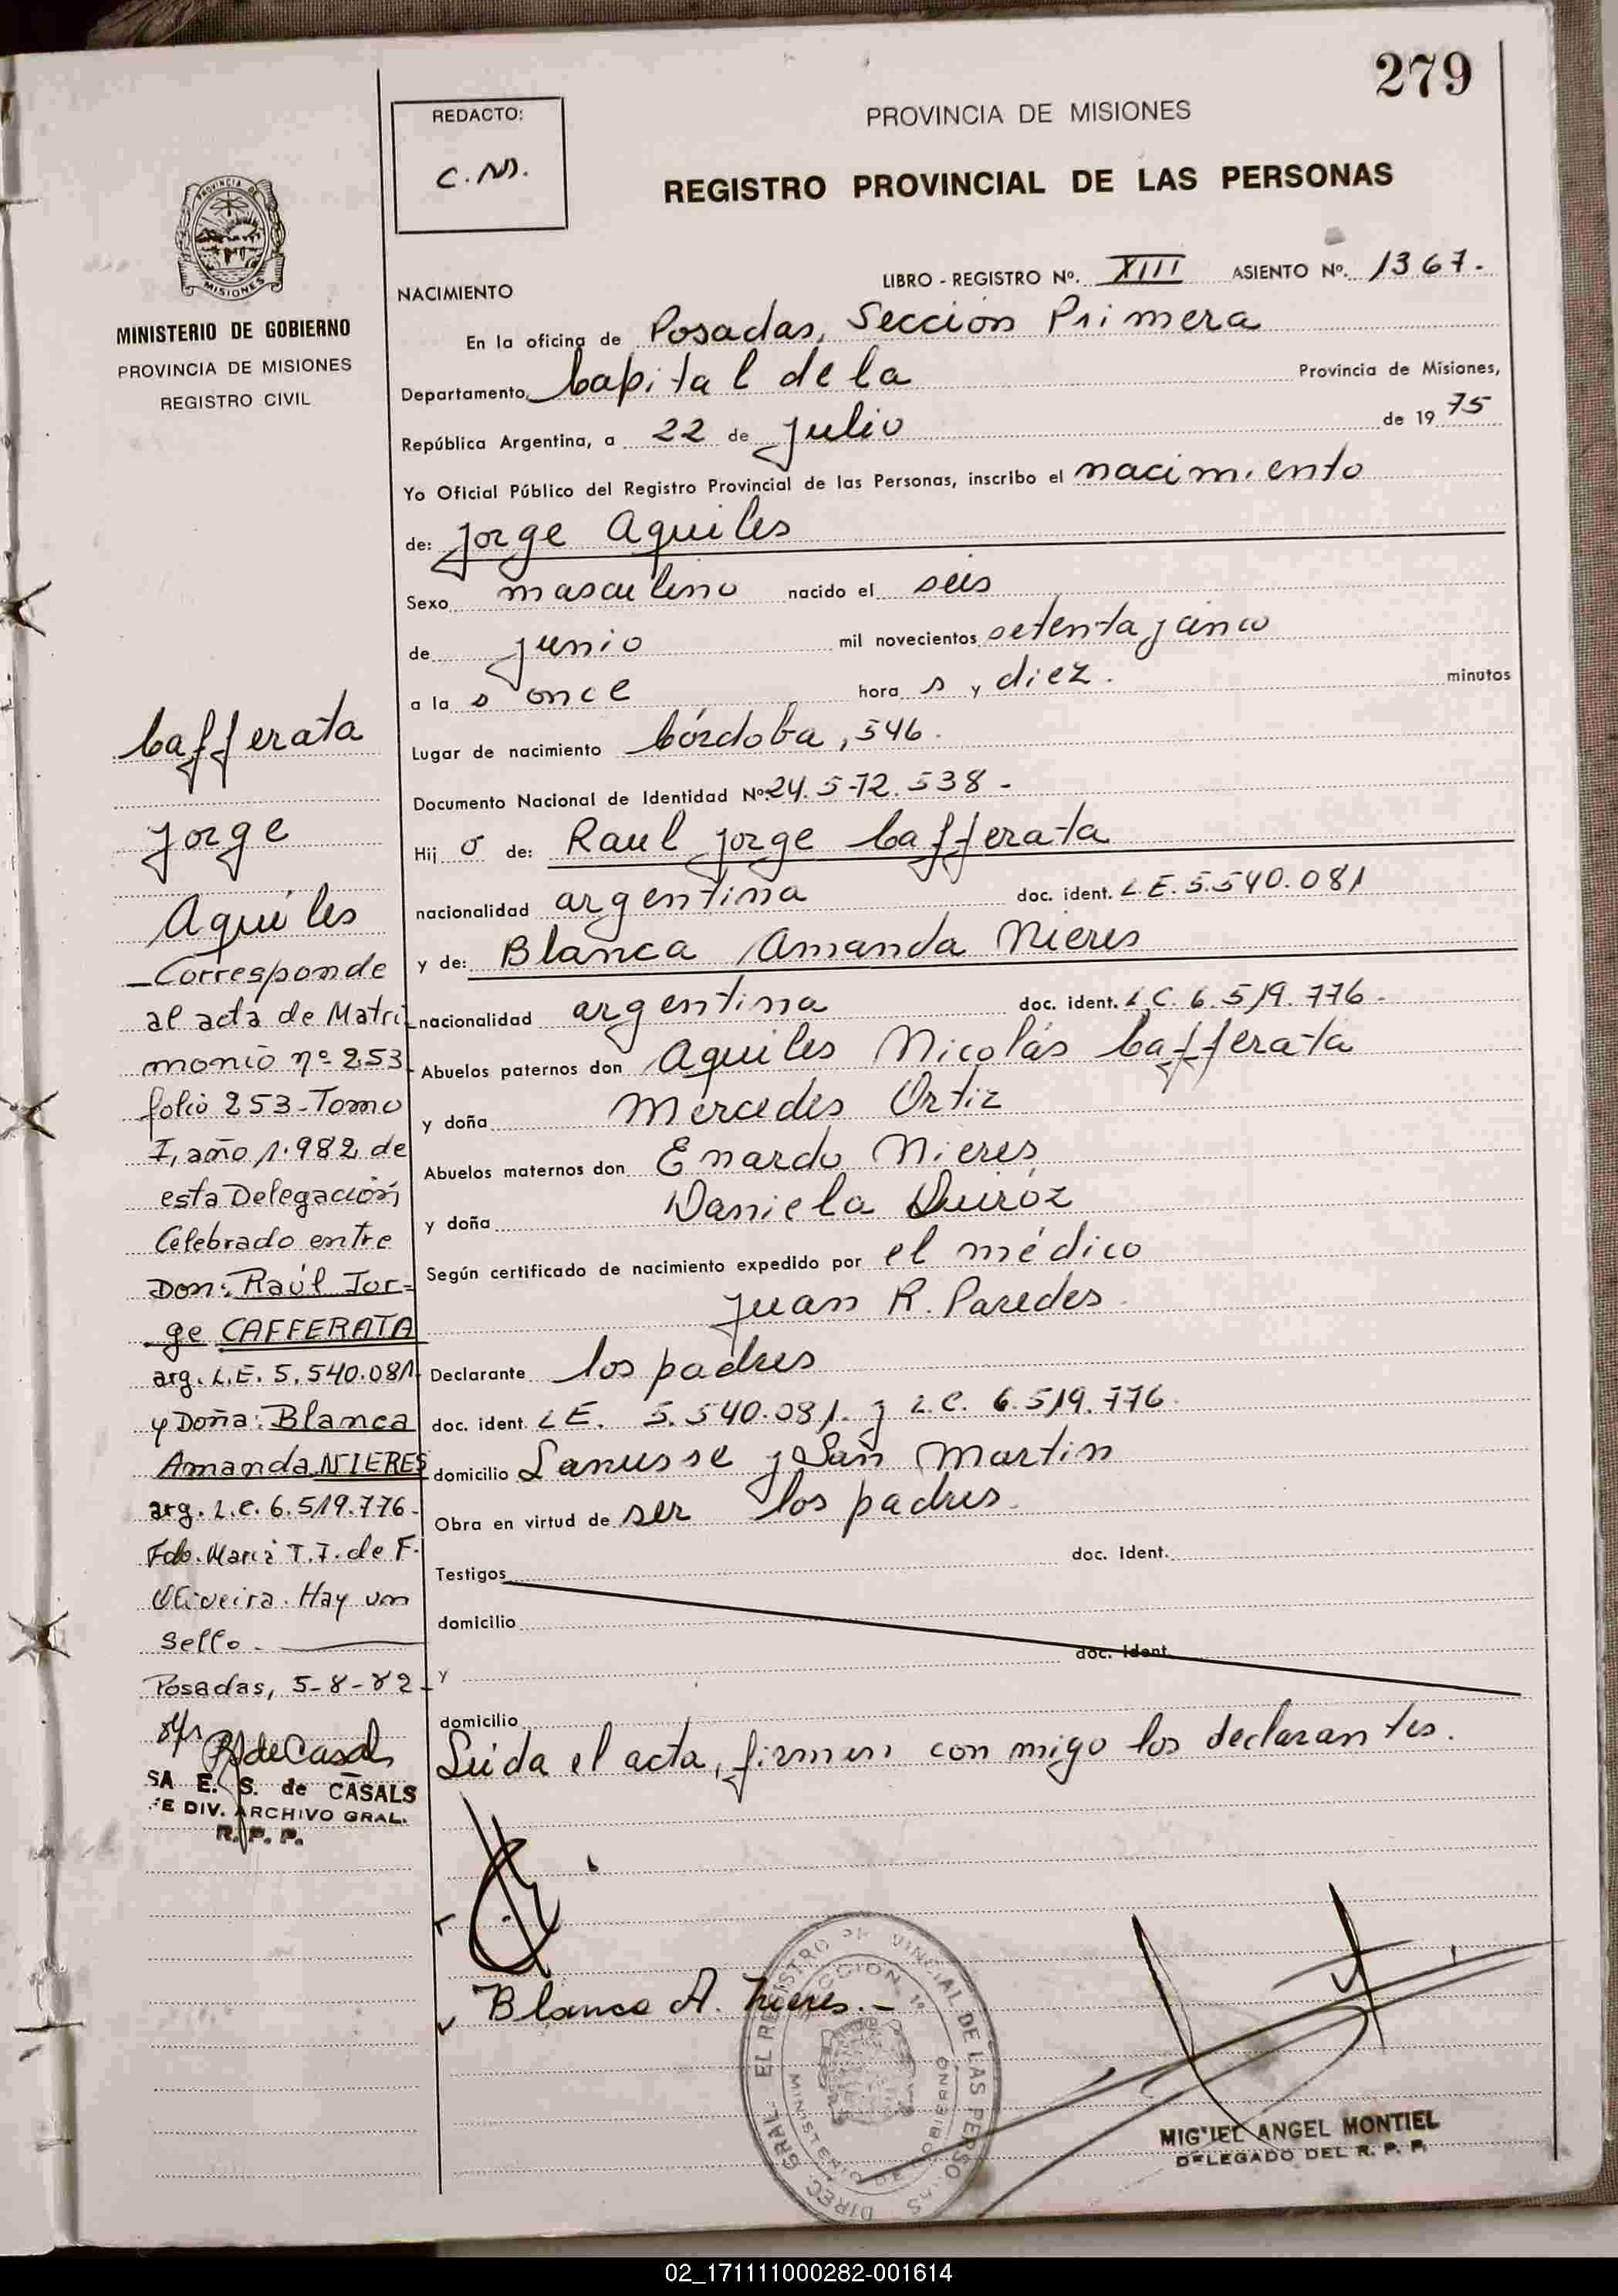 279
REDACTO:
C. N.
PROVINCIA DE MISIONES
REGISTRO PROVINCIAL DE LAS PERSONAS
PROVINCIA DE
MISIONES
MINISTERIO DE GOBIERNO
PROVINCIA DE MISIONES
REGISTRO CIVIL
LIBRO - REGISTRO Nº. XIII ASIENTO Nº. 1367.-
NACIMIENTO
En la oficina de Posadas, Sección Primera
Departamento Capital de la Provincia de Misiones,
República Argentina, a 22 de Julio de 1975
Yo Oficial Público del Registro Provincial de las Personas, inscribo el nacimiento
de: Jorge Aquiles
Sexo masculino nacido el seis
de junio mil novecientos setenta y cinco
a las once horas y diez. minutos
Lugar de nacimiento Córdoba, 546.
Documento Nacional de Identidad Nº. 24.572.538-
Hijo de: Raul Jorge Cafferata
nacionalidad argentina doc. ident. L.E. 5.540.081
y de: Blanca Amanda Nieres
nacionalidad argentina doc. ident. L.C. 6.519.776-
Abuelos paternos don Aquiles Nicolás Cafferata
y doña Mercedes Ortiz
Abuelos maternos don Enardo Nieres
y doña Daniela Quiróz
Según certificado de nacimiento expedido por el médico
Juan R. Paredes
Declarante los padres
doc. ident. L.E. 5.540.081. y L.C. 6.519.776.
domicilio Lanusse y San Martin
Obra en virtud de ser los padres.
Testigos doc. ident.
domicilio
y doc. ident.
domicilio
Leida el acta, firmen con migo los declarantes.
Blanca A. Nieres.-
Cafferata
Jorge
Aquiles
_Corresponde
al acta de Matri_
monio nº 253
folio 253-Tomo
I, año 1.982, de
esta Delegación,
Celebrado entre
Don: Raúl Jor=
ge CAFFERATA
arg. L.E. 5.540.081
y Doña: Blanca
Amanda NIERES
arg. L.C. 6.519.776-
Fdo. Maria T. J. de F.
Oliveira. Hay un
Sello.-
Posadas, 5-8-82-
SA E. S. de CASALS
FE DIV. ARCHIVO GRAL.
R. P. P.
DIREC. GRAL. EL REGISTRO PROVINCIAL DE LAS PERSONAS
SECCION 1º
MINISTERIO DE GOBIERNO
MIGUEL ANGEL MONTIEL
DELEGADO DEL R. P. P.
02_171111000282-001614